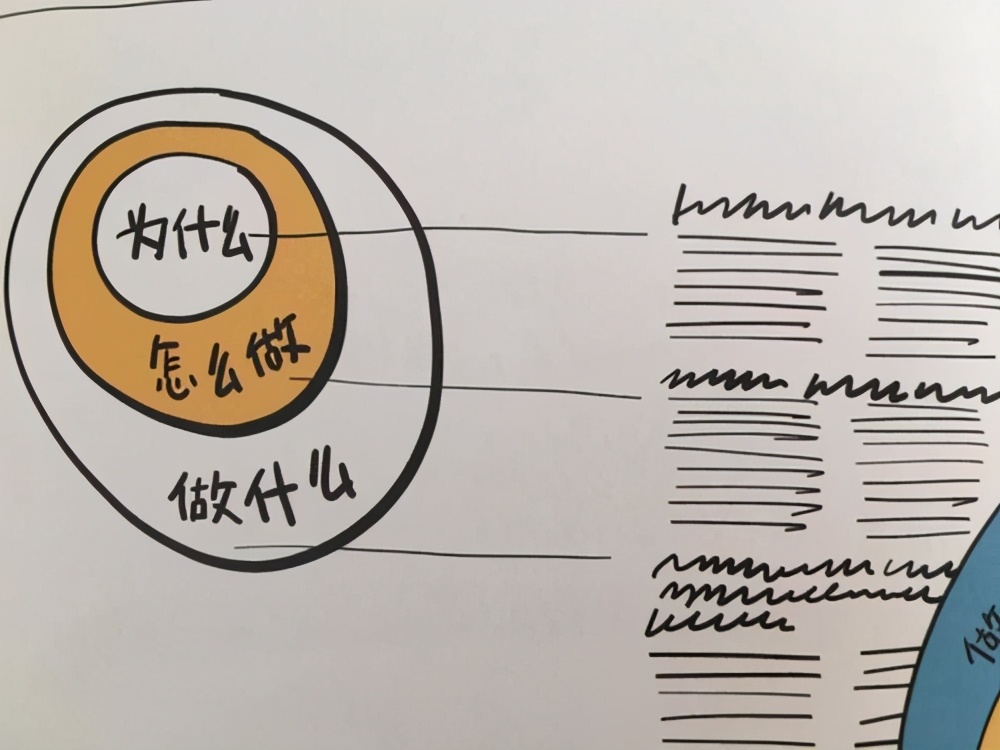 为什么
怎么做
做什么
做